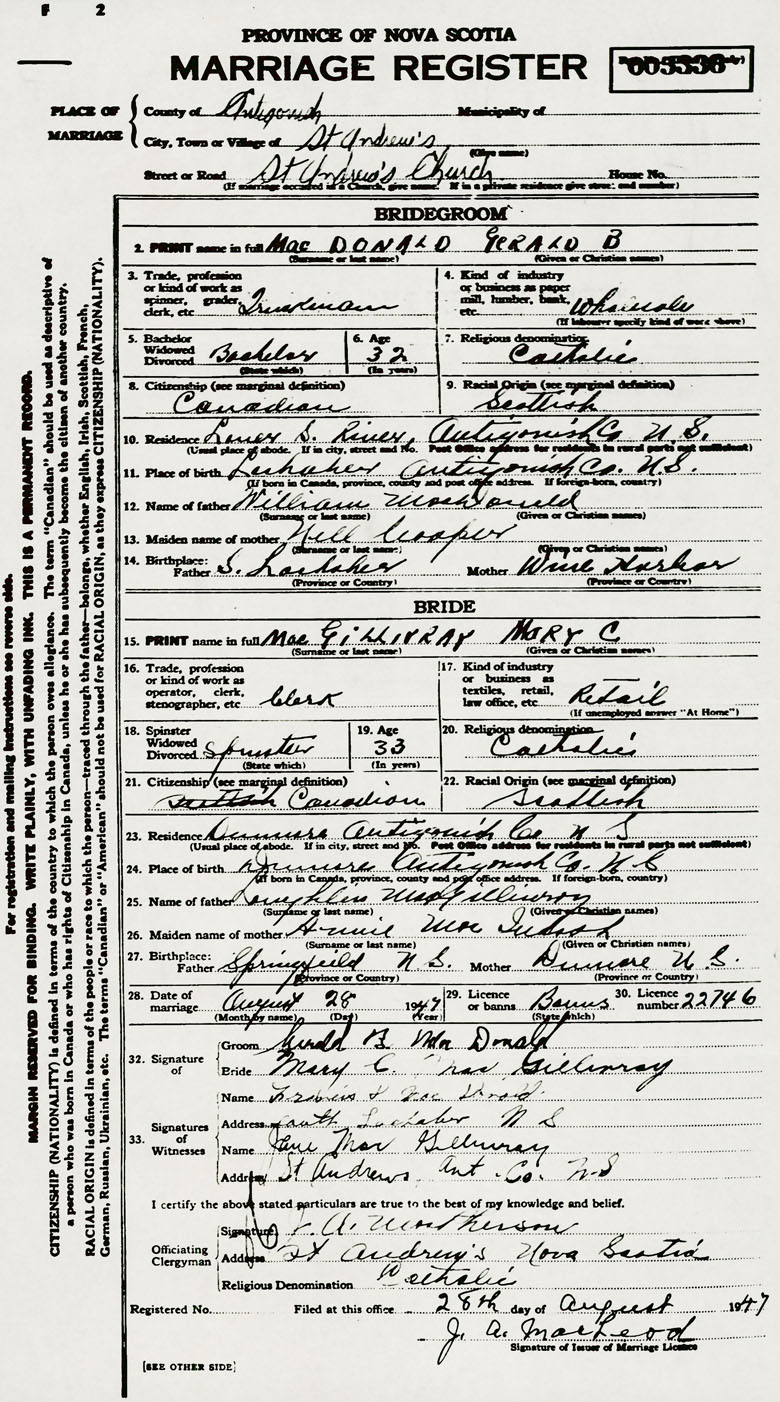 F 2
PROVINCE OF NOVA SCOTIA
MARRIAGE REGISTER 005336
PLACE OF MARRIAGE
County of Antigonish Municipality of
City, Town or Village of St Andrew's
(Give name)
Street or Road St Andrew's Church House No.
(If marriage occurred in a Church, give name. If in a private residence give street and number)
BRIDEGROOM
2. PRINT name in full Mac DONALD GERALD B
(Surname or last name) (Given or Christian names)
3. Trade, profession or kind of work as spinner, grader, clerk, etc. Truckman
4. Kind of industry or business as paper mill, lumber, bank, etc. Wholesale
(If labourer specify kind of work above)
5. Bachelor Widowed Divorced Bachelor
(State which)
6. Age 32
(In years)
7. Religious denomination Catholic
8. Citizenship (see marginal definition) Canadian
9. Racial Origin (see marginal definition) Scottish
10. Residence Lower S. River, Antigonish Co N.S.
(Usual place of abode. If in city, street and No. Post Office address for residents in rural parts not sufficient)
11. Place of birth Lochaber Antigonish Co. N.S.
(If born in Canada, province, county and post office address. If foreign-born, country)
12. Name of father William MacDonald
(Surname or last name) (Given or Christian names)
13. Maiden name of mother Nell Cooper
(Surname or last name) (Given or Christian names)
14. Birthplace: Father S. Lochaber Mother Wine Harbor
(Province or Country) (Province or Country)
BRIDE
15. PRINT name in full Mac GILLIVRAY MARY C
(Surname or last name) (Given or Christian names)
16. Trade, profession or kind of work as operator, clerk, stenographer, etc Clerk
17. Kind of industry or business as textiles, retail, law office, etc. Retail
(If unemployed answer "At Home")
18. Spinster Widowed Divorced Spinster
(State which)
19. Age 33
(In years)
20. Religious denomination Catholic
21. Citizenship (see marginal definition) Scottish Canadian
22. Racial Origin (see marginal definition) Scottish
23. Residence Dunmore Antigonish Co N S
(Usual place of abode. If in city, street and No. Post Office address for residents in rural parts not sufficient)
24. Place of birth Dunmore Antigonish Co. N.S
(If born in Canada, province, county and post office address. If foreign-born, country)
25. Name of father Loughlin MacGillivray
(Surname or last name) (Given or Christian names)
26. Maiden name of mother Annie Mac Intosh
(Surname or last name) (Given or Christian names)
27. Birthplace: Father Springfield N.S. Mother Dunmore N.S.
(Province or Country) (Province or Country)
28. Date of marriage August 28 1947
(Month by name) (Day) (Year)
29. Licence or banns Banns
(State which)
30. Licence number 22746
32. Signature of
Groom Gerald B. Mac Donald
Bride Mary C. Mac Gillivray
33. Signatures of Witnesses
Name Mac Donald
Address South Lochaber N S
Name Jane Mac Gillivray
Address St Andrews Ant. Co. N.S
I certify the above stated particulars are true to the best of my knowledge and belief.
Officiating Clergyman
Signature
Address St Andrew's Nova Scotia
Religious Denomination Catholic
Registered No. Filed at this office 28th day of August 1947
J. A. MacLeod
Signature of Issuer of Marriage Licence
[SEE OTHER SIDE]
For registration and mailing instructions see reverse side.
MARGIN RESERVED FOR BINDING. WRITE PLAINLY, WITH UNFADING INK. THIS IS A PERMANENT RECORD.
CITIZENSHIP (NATIONALITY) is defined in terms of the country to which the person owes allegiance. The term "Canadian" should be used as descriptive of
a person who was born in Canada or who has rights of Citizenship in Canada, unless he or she has subsequently become the citizen of another country.
RACIAL ORIGIN is defined in terms of the people or race to which the person—traced through the father—belongs, whether English, Irish, Scottish, French,
German, Russian, Ukrainian, etc. The terms "Canadian" or "American" should not be used for RACIAL ORIGIN, as they express CITIZENSHIP (NATIONALITY).